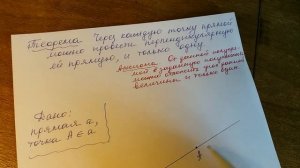 Теорема. Через каждую точку прямой
можно провести перпендикулярную
ей прямую, и только одну.
Аксиома. От данной полупря-
мой в заданную полуплоскость
можно отложить угол данной
величины и только один.
Дано:
прямая a,
точка A ∈ a.
A